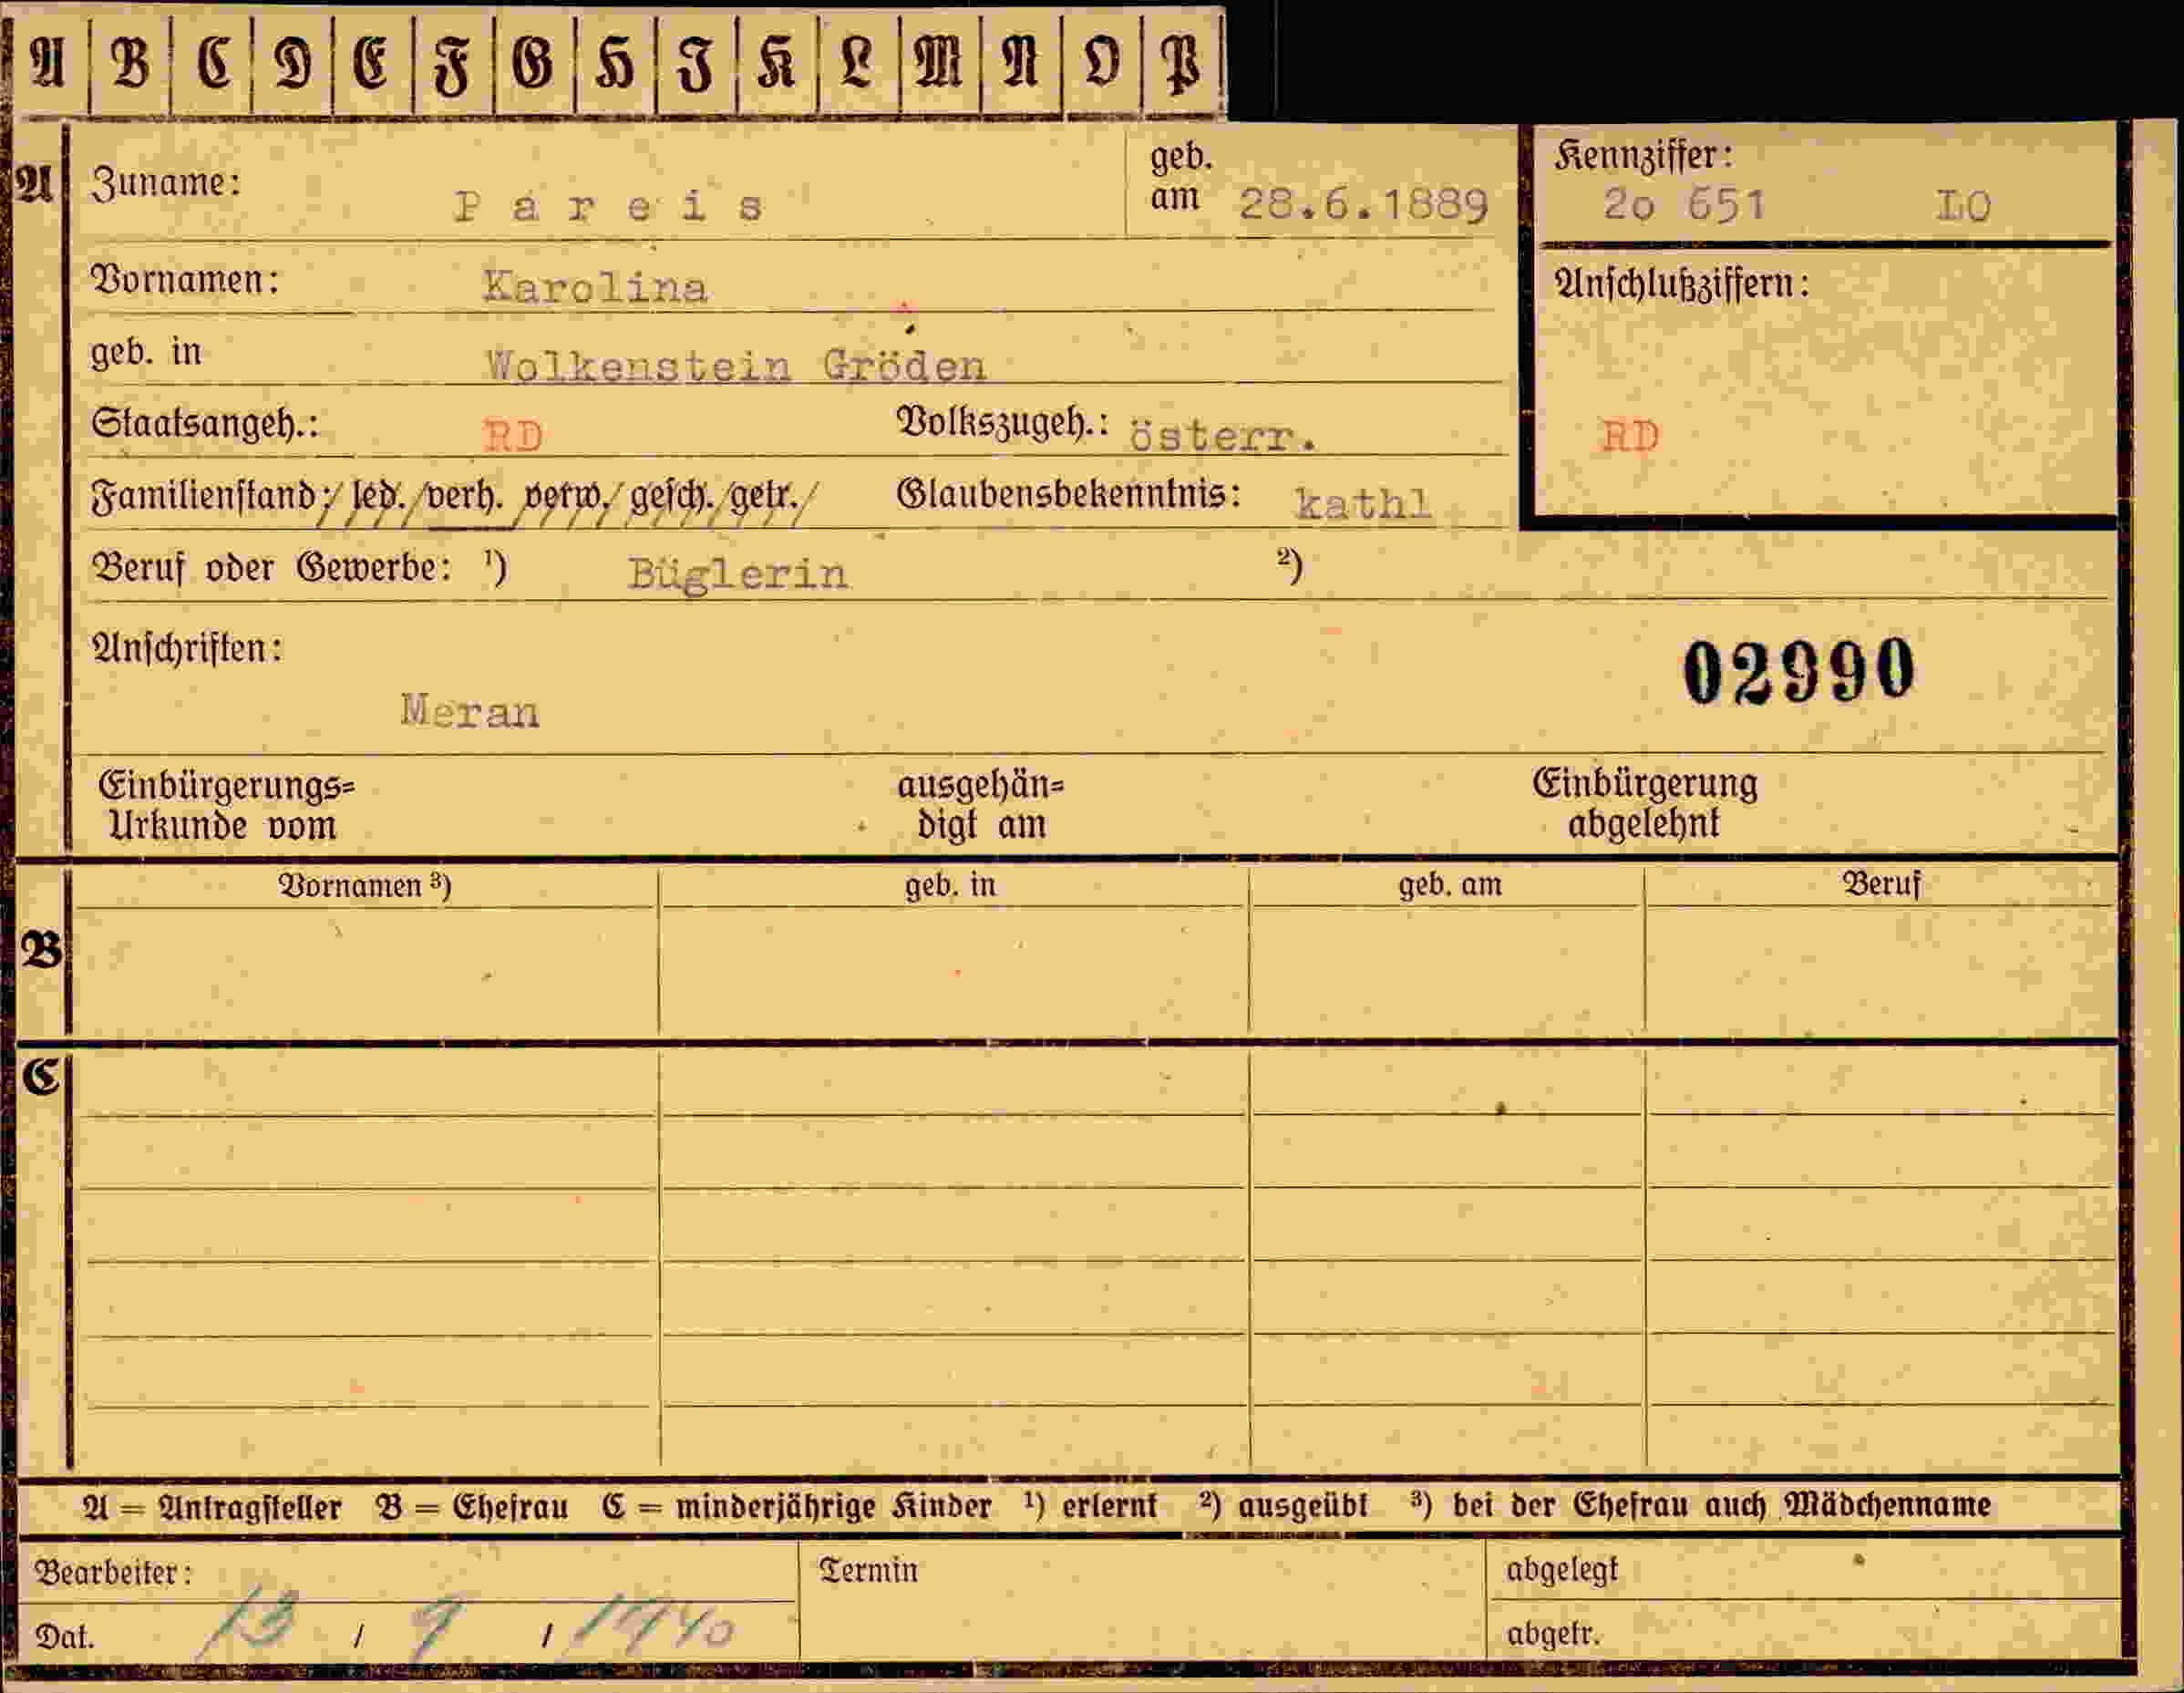 A B C D E F G H I K L M N O P
A Zuname: Pareis geb. am 28.6.1889 Kennziffer: 2o 651 LO
Vornamen: Karolina Anschlußziffern:
geb. in Wolkenstein Gröden
Staatsangeh.: RD Volkszugeh.: österr. RD
Familienstand: led. verh. verw. gesch. getr. Glaubensbekenntnis: kathl
Beruf oder Gewerbe: ¹) Büglerin ²)
Anschriften: 02990
Meran
Einbürgerungs= ausgehän= Einbürgerung
Urkunde vom digt am abgelehnt
Vornamen ³) geb. in geb. am Beruf
B
C
A = Antragsteller B = Ehefrau C = minderjährige Kinder ¹) erlernt ²) ausgeübt ³) bei der Ehefrau auch Mädchenname
Bearbeiter: Termin abgelegt
Dat. 13 / 9 / 1940 abgetr.